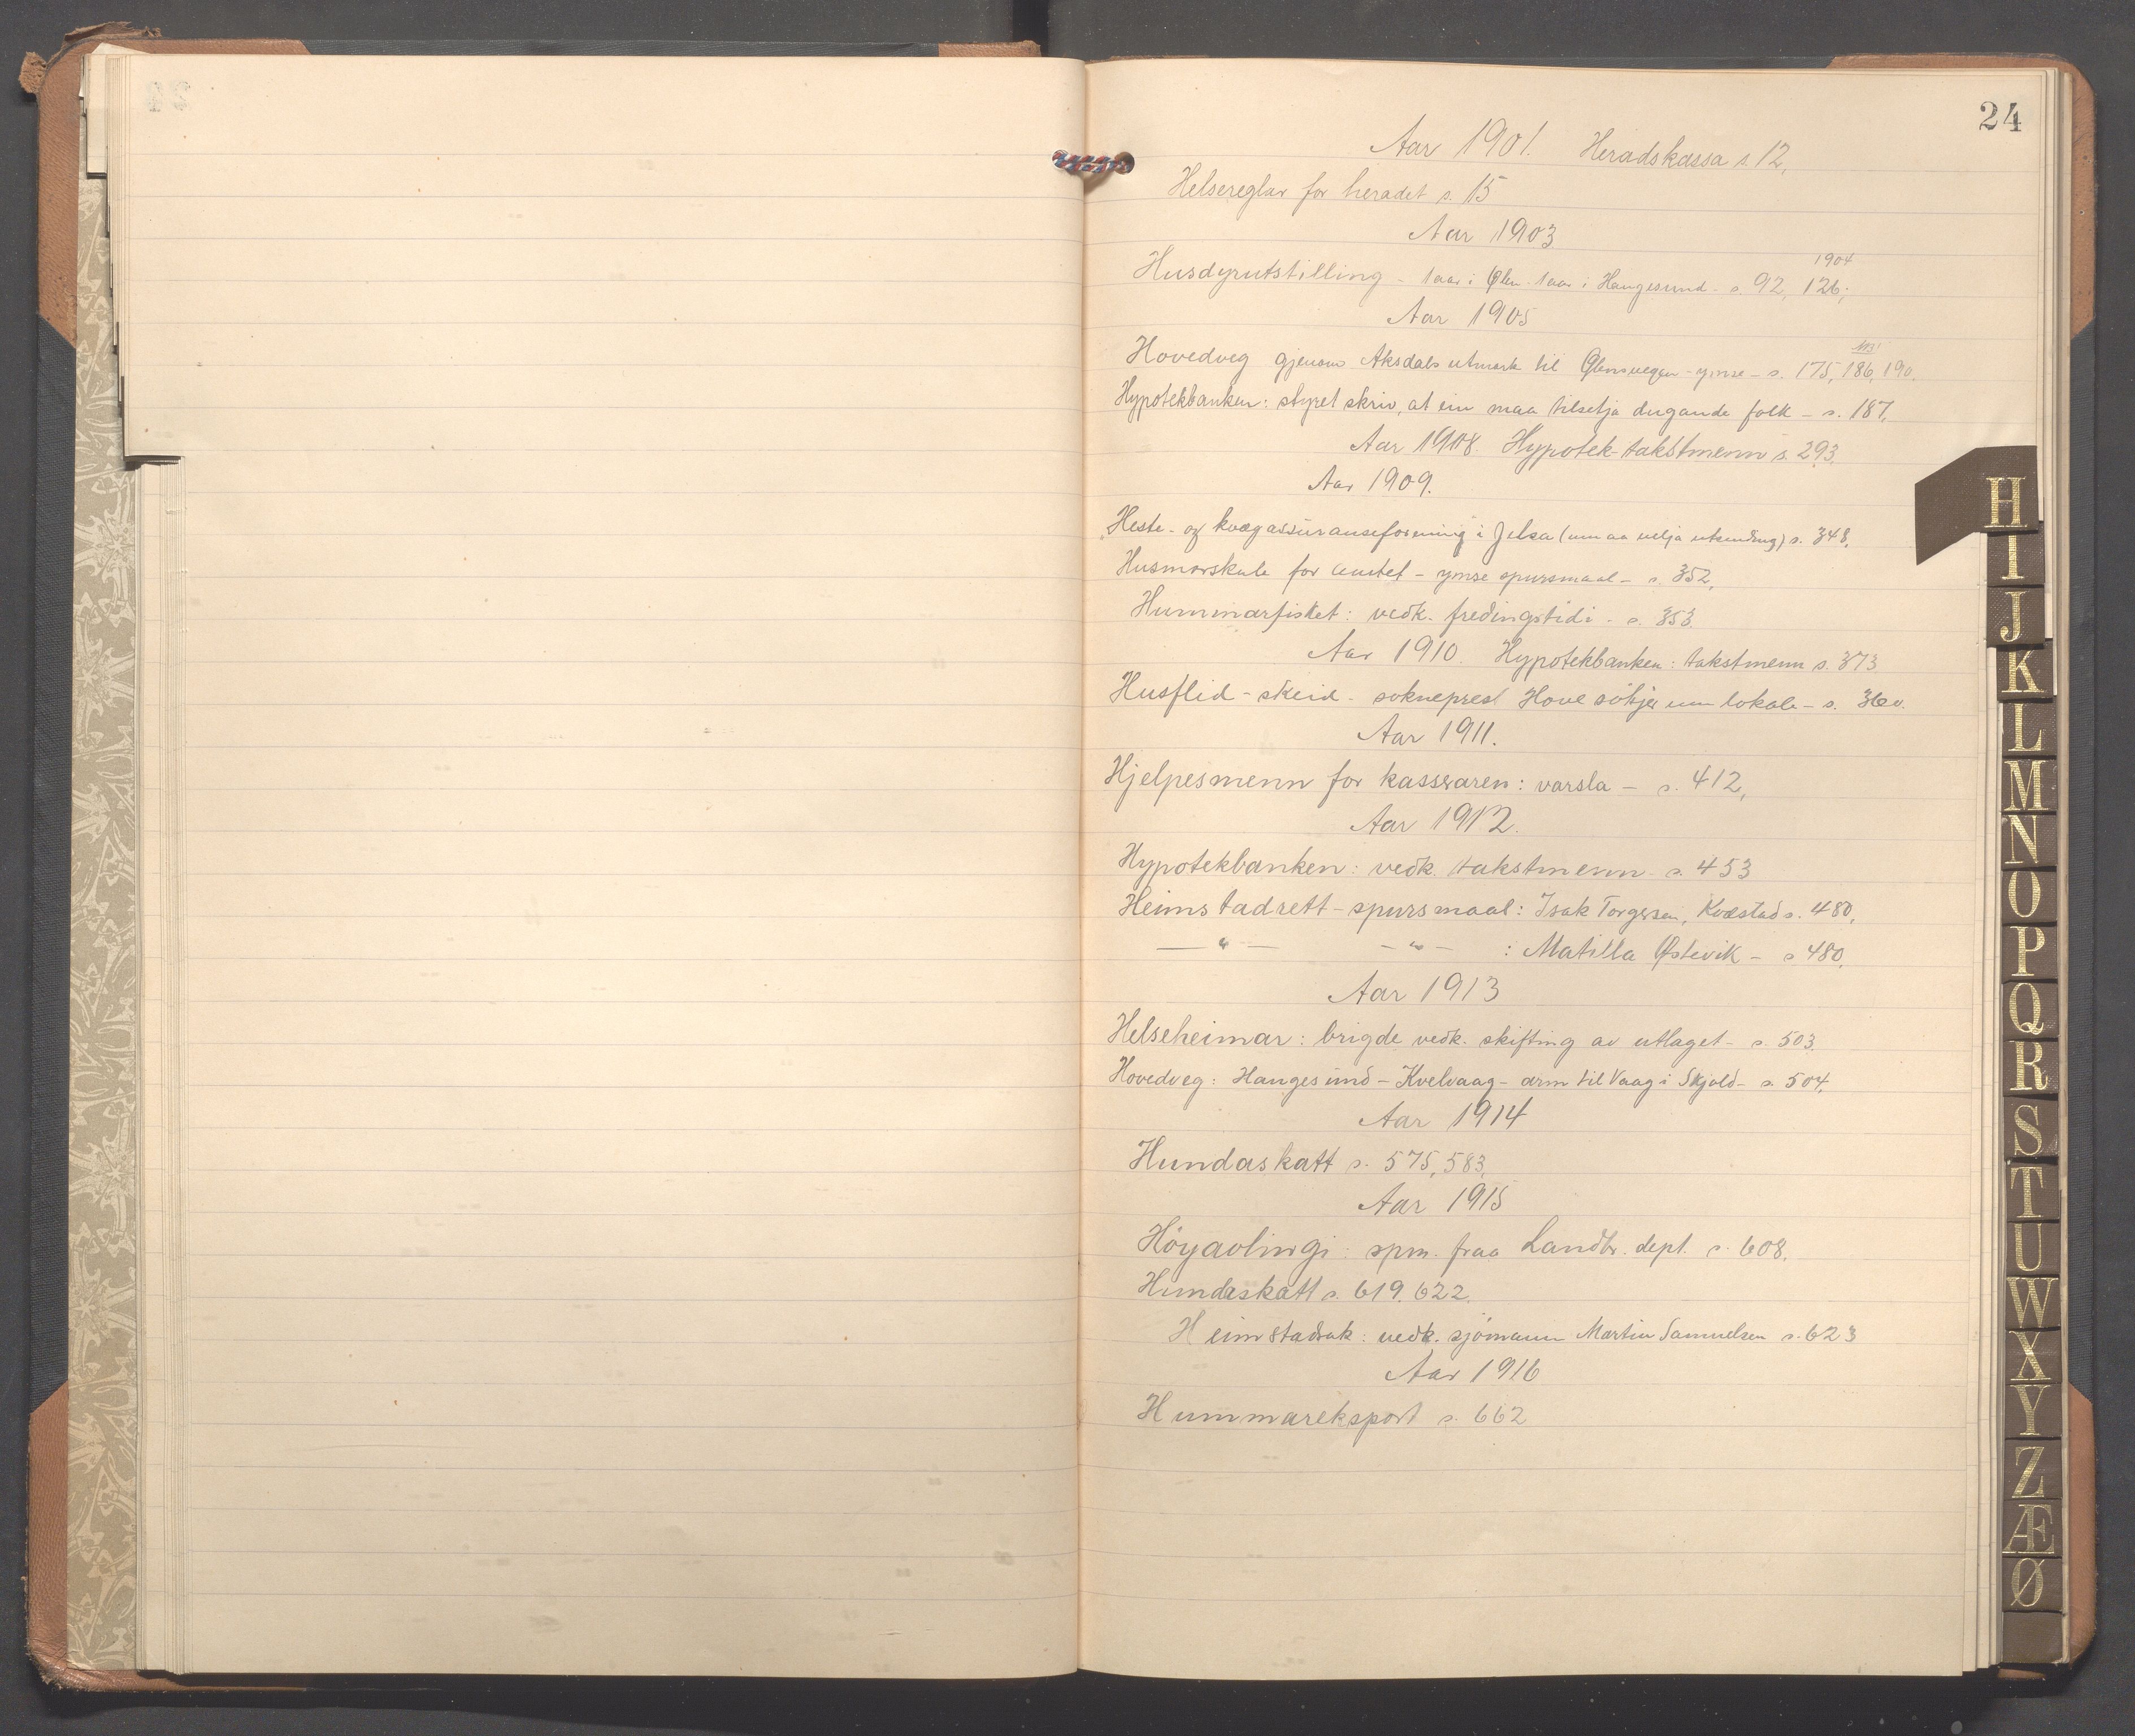 24
Aar 1901. Heradskassa s. 12,
Helsereglar for heradet s. 15
Aar 1903
1904
Husdyrutstilling - 1 aar i Ølen 1 aar i Haugesund - s. 92, 126;
Aar 1905
NB!
Hovedveg gjenom Aksdals utmark til Ølensvegen - ymse - s. 175, 186, 190.
Hypotekbanken: styret skriv, at ein maa tilsetja dugande folk - s. 187,
Aar 1908. Hypotek-takstmenn s. 293.
Aar 1909.
Heste- og kvægassuranseforening i Jelsa (um aa velja utsending) s. 348,
Husmorskule for amtet - ymse spursmaal - s. 352,
Hummarfisket: vedk. fredingstidi - s. 353.
Aar 1910. Hypotekbanken: takstmenn s. 373
Husflid-skeid - sokneprest Hove søkjer um lokale - s. 360.
Aar 1911.
Hjelpesmenn for kasseraren: varsla - s. 412,
Aar 1912.
Hypotekbanken: vedk. takstmenn - s. 453
Heimstadrett-spursmaal: Isak Torgersen, Kvæstad s. 480,
— " — - " - : Matilla Østevik - s 480.
Aar 1913
Helseheimar: brigde vedk. skifting av utlaget - s. 503.
Hovedveg: Haugesund - Kvelvaag - arm til Vaag i Skjold - s. 504,
Aar 1914
Hundaskatt s. 575, 583,
Aar 1915
Höyavlingi: spm. fraa Landbr. dept. s. 608.
Hundaskatt s. 619. 622.
Heimstadsak: vedk. sjömann Martin Samuelsen s. 623
Aar 1916
Hummareksport s. 662
H
I
J
K
L
M
N
O
P
Q
R
S
T
U
W
X
Y
Z
Æ
Ø